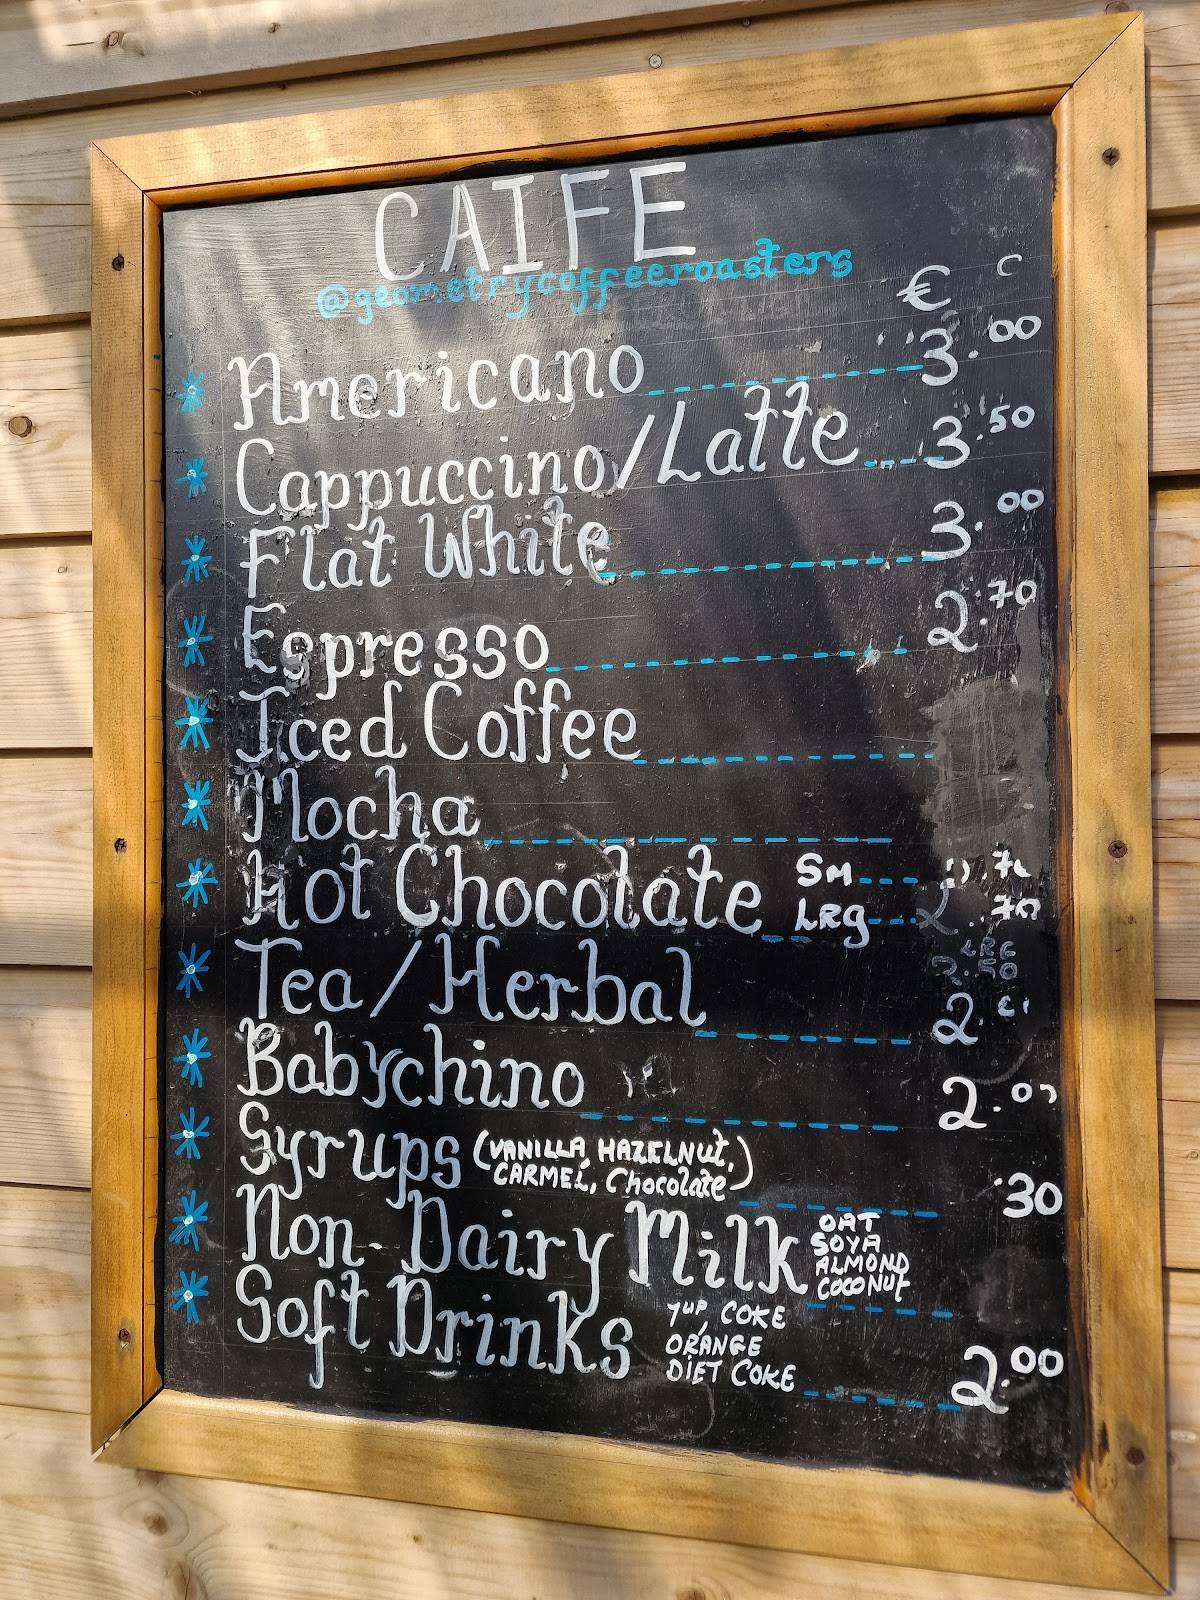 CAIFE
@geometrycoffeeroasters
€ C
Americano 3.00
Cappuccino/Latte 3.50
Flat White 3.00
Espresso 2.70
Iced Coffee
Mocha
Hot Chocolate Sm .70
LRg 2.70
LRG
.50
Tea/Herbal 2.
Babychino 2.00
Syrups (VANILLA, HAZELNUT,
CARMEL, Chocolate) .30
Non-Dairy Milk OAT
SOYA
ALMOND
COCONUT
Soft Drinks 7UP, COKE
ORANGE
DIET COKE 2.00